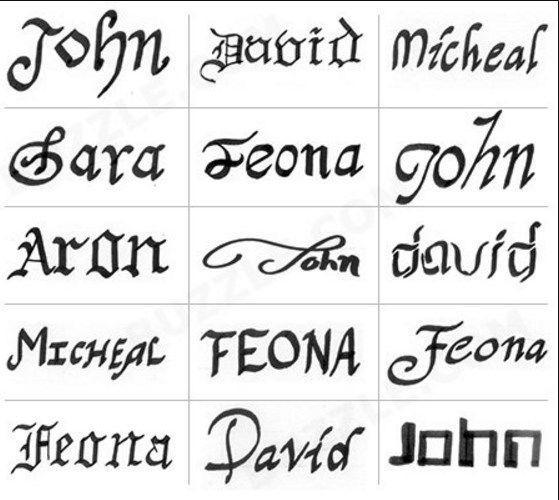 John David Micheal
Sara Feona John
Aron John david
MICHEAL FEONA Feona
Feona David John